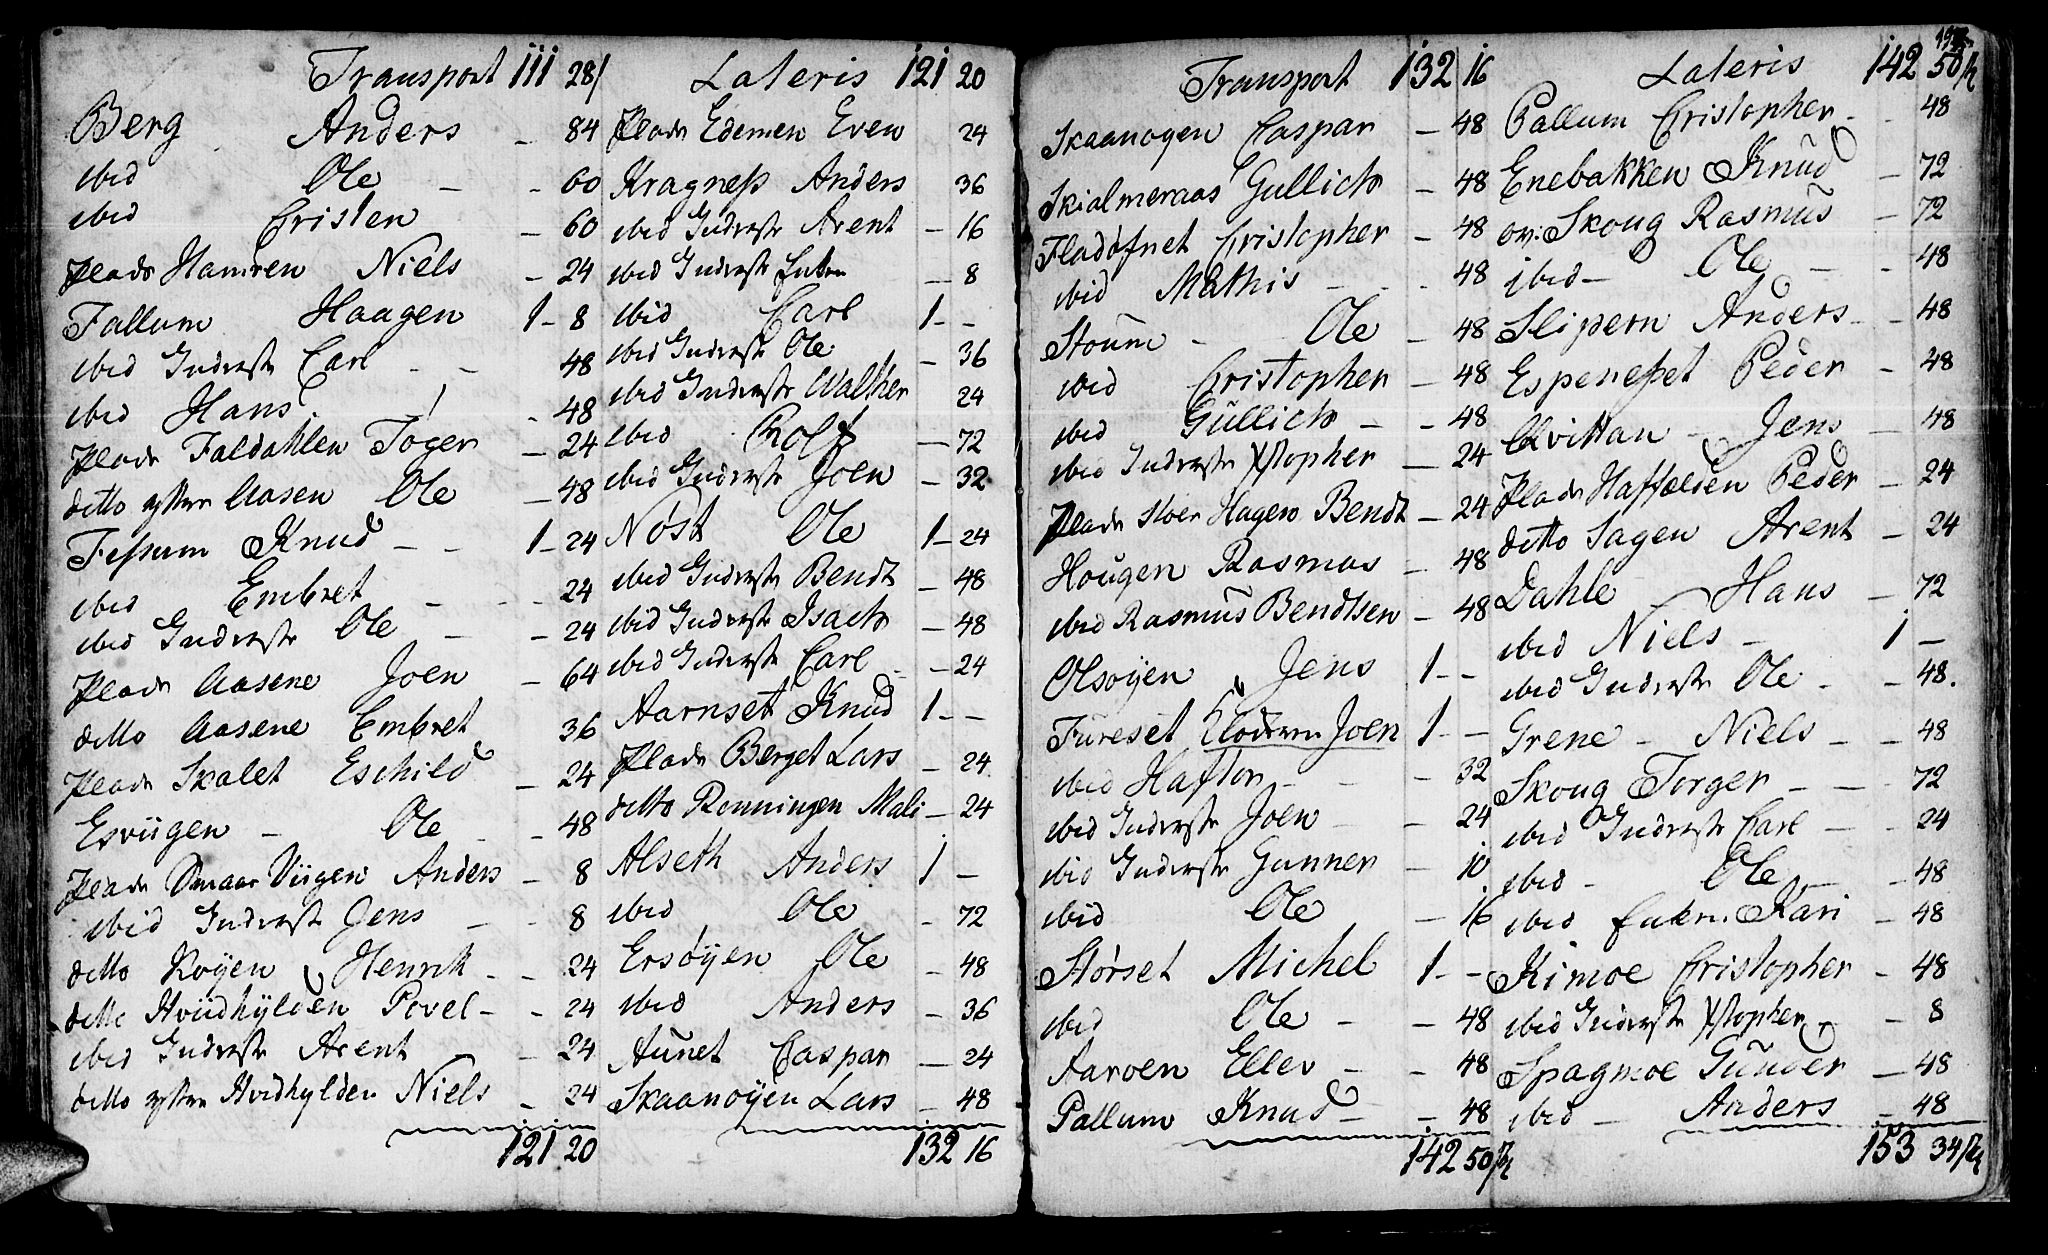 Transport 111 28/
Berg Anders - 84
ibid Ole - - 60
ibid Cristen - 60
Plads Hamren Niels - 24
Fallum Haagen 1 - 8
ibid Inderste Carl - - 48
ibid Hans - 48
Plads Faldahlen Toger - 24
ditto ytter Aasen Ole - 48
Fessum Knud - - 1 - 24
ibid Embret - - - 24
ibid Inderste Ole - - 24
Plads Aasene Joen - 64
ditto Aasene Embret 36
Plads Skalet Eschild - 24
Esviigen - Ole - - 48
Plads Smaae Viigen Anders - 8
ibid Inderste Jens - - 8
ditto Royen Henrik - - 24
ditto Hvidhylden Povel - - 24
ibid Inderste Arent - 24
ditto ytter Hvidhylden Niels - 24
121 20
Lateris 121 20
Plads Edemen Even 24
Kragness Anders 36
ibid Inderste Arent - 16
ibid Inderste Enken - 8
ibid Carl 1 - -
ibid Inderste Ole - 36
ibid Inderste Walther 24
ibid Rolf - 72
ibid Inderste Joen - 32
Nøst Ole 1 - 24
ibid Inderste Bendt - 48
ibid Inderste Isach - 48
ibid Inderste Carl - - 24
Aarnset Knud 1 - -
Plads Berget Lars - 24
ditto Rønningen Mali - 24
Alseth Anders 1 -
ibid Ole - 72
Ersøyen Ole - 48
ibid Anders - 36
Aunet Caspar - 24
Skaanøyen Lars - 48
132 16
Transport 132 16
Skaanøyen Caspar - 48
Skialmeraas Gullich - 48
Fladøfnet Cristopher - 48
ibid Mathis - - - 48
Stoum - Ole - 48
ibid Cristopher - 48
ibid Gullich - - 48
ibid Inderste Xstopher - 24
Plads Stoer Hagen Bendt - 24
Hougen Rasmus - 48
ibid Rasmus Bendtsen - 48
Olsøyen Jens 1 - -
Fureset Joen 1 - -
ibid Haftor - - - 32
ibid Inderste Joen - - 24
ibid Inderste Gunner - 10
ibid Ole - 16
Størset Michel 1 - -
ibid Ole - - 48
Aaroen Ellev - - 48
Pallum Knud - - 48
142 50/2
Lateris 142 50/2
Pallum Cristopher - - 48
Enebakken Knud - 72
ov: Skoug Rasmus - 72
ibid - Ole - - 48
Slipern Anders - - 48
Espenesset Peder - 48
Qvittan - Jens - 48
Plads Haffælden Peder - 24
ditto Sagen Arent - 24
Dahle - Hans - 72
ibid Niels - 1 -
ibid Inderste Ole - - 48.
Grene - Niels - - 48
Skoug Torger - - - 72
ibid Inderste Carl - - 24
ibid - Ole - - 48
ibid Enken Kari - 48
Kimoe Cristopher - 48
ibid Inderste Xstopher - - 8
Spagmoe Gunder - 48
ibid - Anders - 48
153 34/2